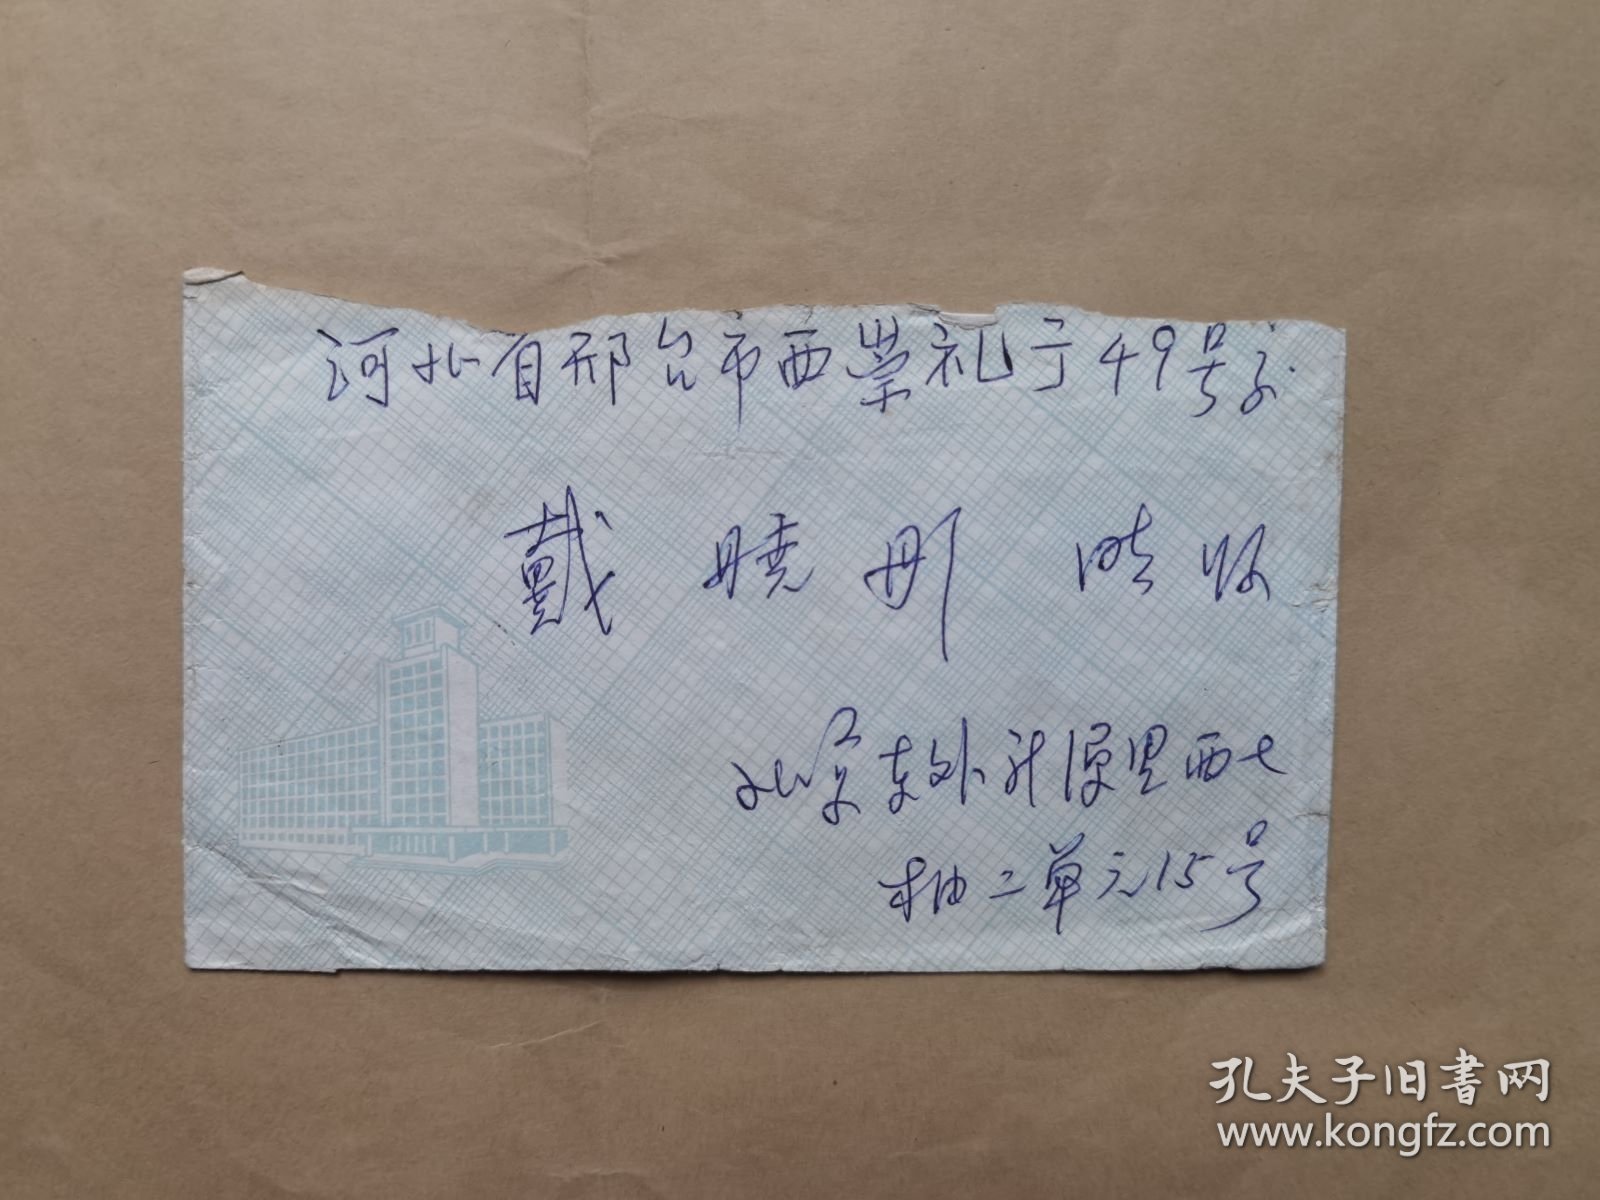 河北省邢台市西崇礼于49号
戴晓彤 收
北京东外新源里西七
楼二单元15号
孔夫子旧书网
www.kongfz.com